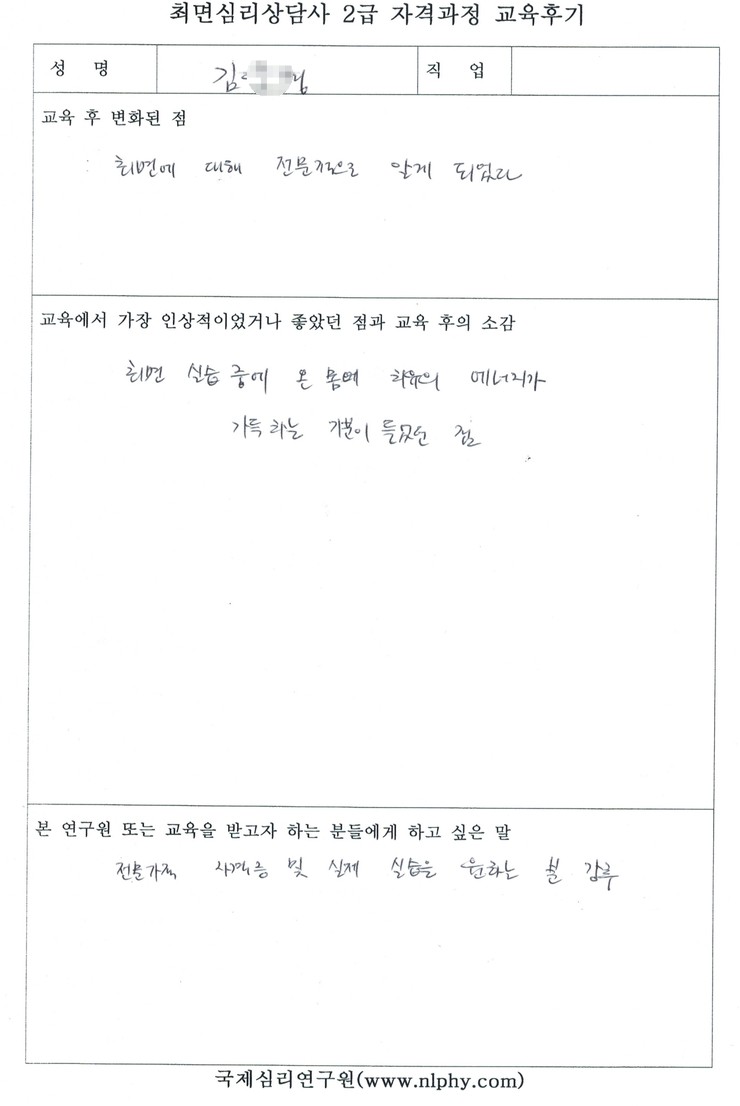 최면심리상담사 2급 자격과정 교육후기
성 명 김 님 직 업
교육 후 변화된 점
: 최면에 대해 전문적으로 알게 되었다
교육에서 가장 인상적이었거나 좋았던 점과 교육 후의 소감
최면 실습 중에 온 몸에 치유의 에너지가
가득 차는 기분이 들었던 점
본 연구원 또는 교육을 받고자 하는 분들에게 하고 싶은 말
자격증 및 실제 실습을 원하는 분
국제심리연구원(www.nlphy.com)